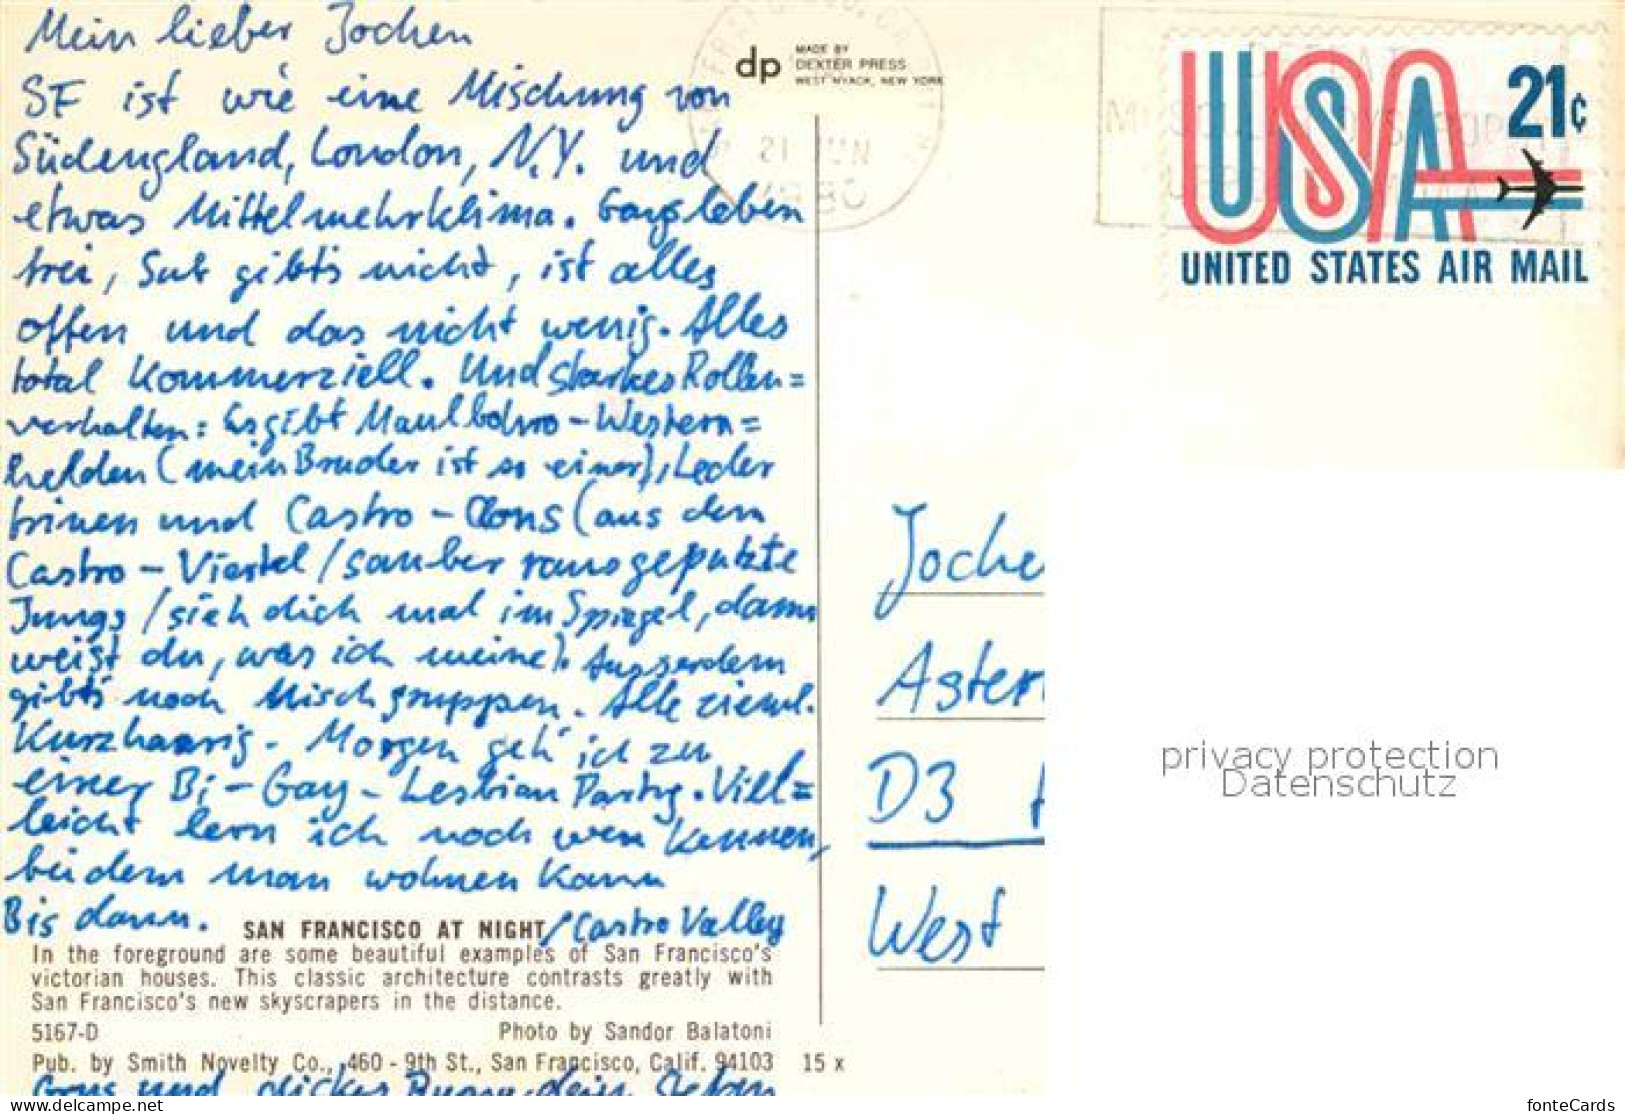 Mein lieber Jochen
SF ist wie eine Mischung von
Südengland, London, N.Y. und
etwas Mittelmehrklima. Gays leben
frei, Sub gibts nicht, ist alles
offen und das nicht wenig. Alles
total Kommerziell. Und starkes Rollen=
verhalten: Es gibt Maulbohro-Western=
helden (mein Bruder ist so einer), Leder
trinen und Castro-Clons (aus dem
Castro-Viertel / sauber rausgeputzte
Jungs / sieh dich mal im Spiegel, dann
weist du, was ich meine). Ausserdem
gibts noch Mischgruppen. Alle zieml.
Kurzhaarig. Morgen geh' ich zu
einer Bi-Gay-Lesbian Party. Viel=
leicht lern ich noch wen kennen,
bei dem man wohnen kann
Bis dann. / Castro Valley
SAN FRANCISCO AT NIGHT
In the foreground are some beautiful examples of San Francisco's
victorian houses. This classic architecture contrasts greatly with
San Francisco's new skyscrapers in the distance.
5167-D Photo by Sandor Balatoni
Pub. by Smith Novelty Co., 460 - 9th St., San Francisco, Calif. 94103 15 x
Gruss und dicker dein Stefan
dp MADE BY
DEXTER PRESS
WEST NYACK, NEW YORK
USA 21¢
UNITED STATES AIR MAIL
Joche
Aster
D3
West
privacy protection
Datenschutz
www.delcampe.net
fonteCards